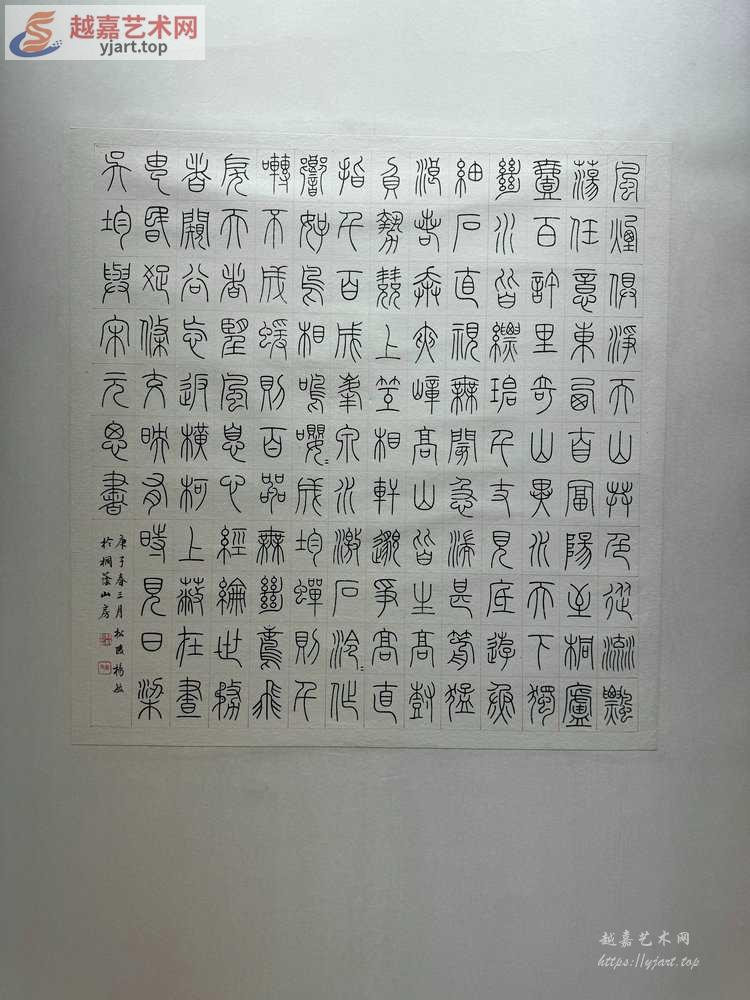 越嘉艺术网
yjart.top
風煙俱淨天山共色從流飄
蕩任意東西自富陽至桐廬
壹百許里奇山異水天下獨
絕水皆縹碧千丈見底游魚
細石直視無礙急湍甚箭猛
浪若奔夾嶂高山皆生高樹
負勢競上互相軒邈爭高直
指千百成峯泉水激石泠泠作
響好鳥相鳴嚶嚶成韻蟬則千
囀不成蝯則百叫無絕鳶飛
戾天者望風息心經綸世務
者闚谷忘返橫柯上蔽在晝
猶昏疏條交映有時見日梁
吳均與宋元思書
庚子春三月松
於桐蔭山房
越嘉艺术网
https://yjart.top